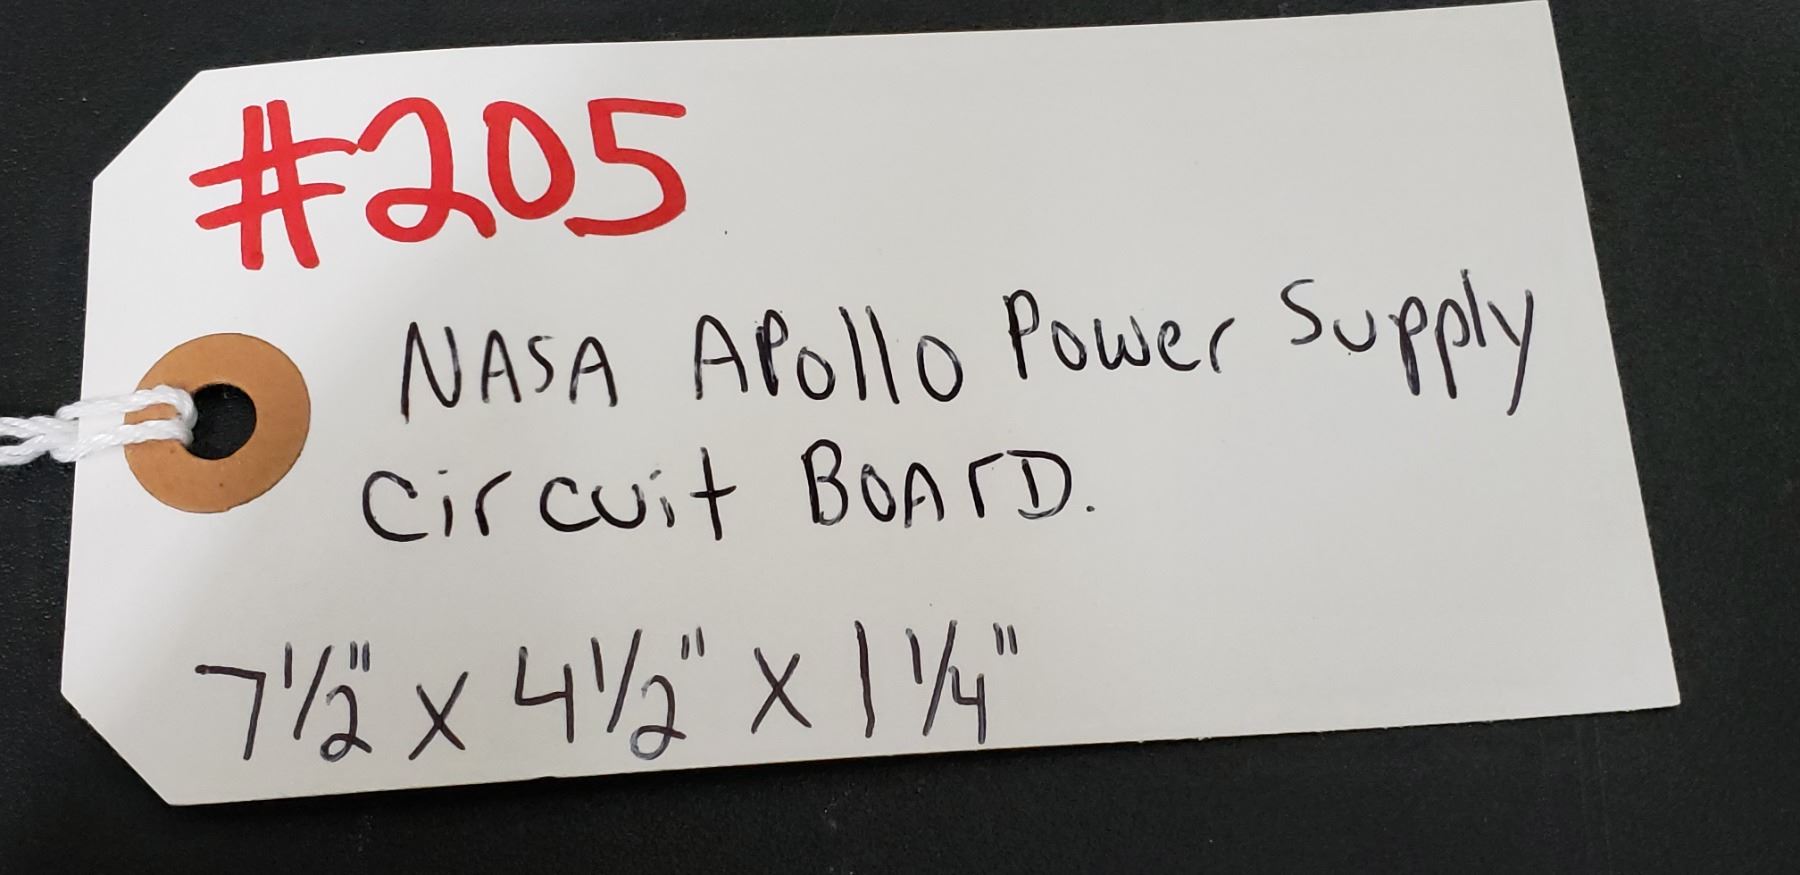 #205
NASA APollo Power Supply
Circuit BOArD.
7 1/2" x 4 1/2" x 1 1/4"